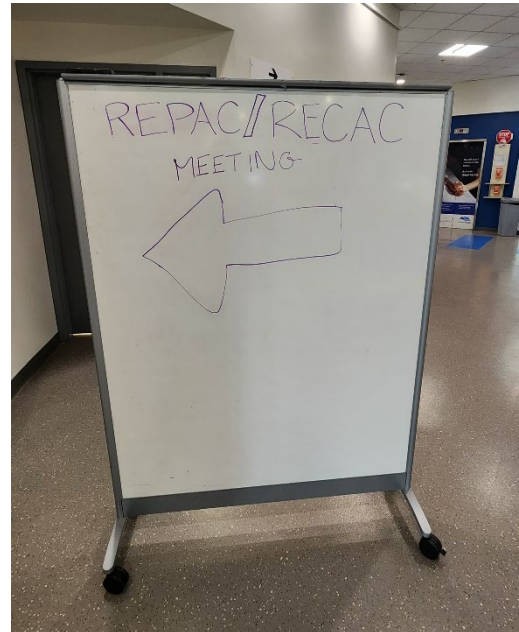 REPAC/RECAC
MEETING
STOP